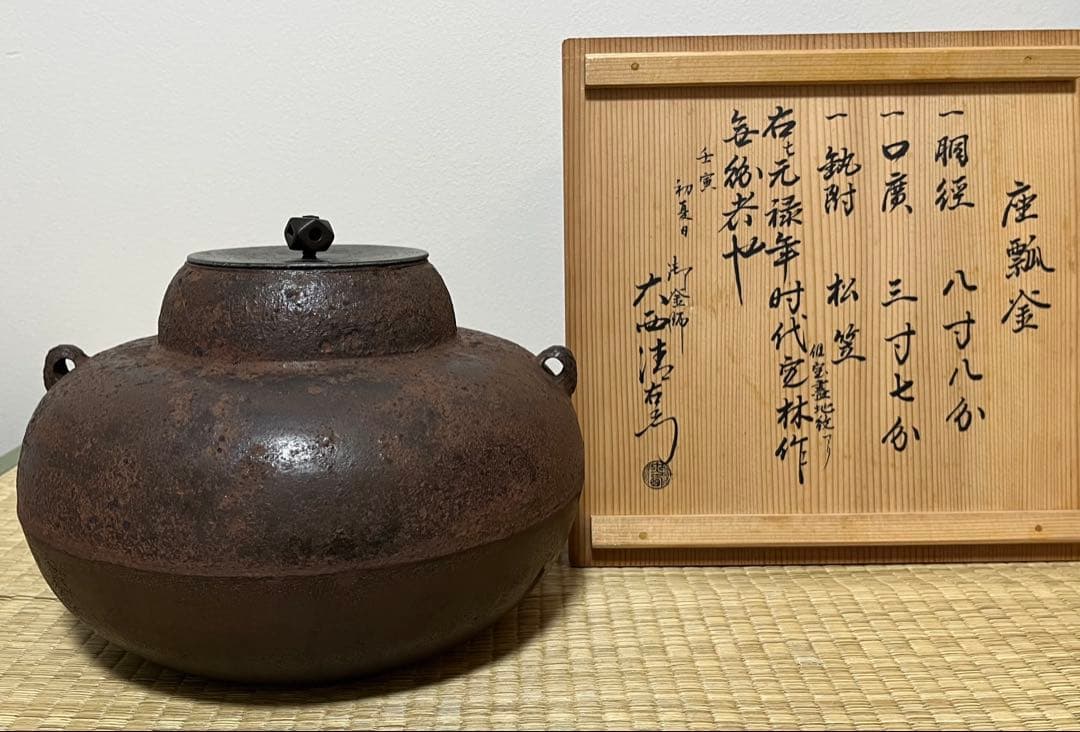 座瓢釜
一胴径 八寸八分
一口廣 三寸七分
一釻附 松笠
但蓋地紋アリ
右ハ元禄年时代定林作
無紛者也
壬寅
初夏日
御釜師
大西清右衛門